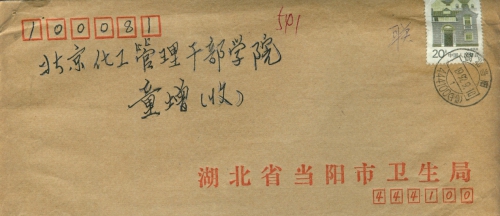 100081
501
联
北京化工管理干部学院
童增(收)
20分
湖北省当阳市卫生局
444100